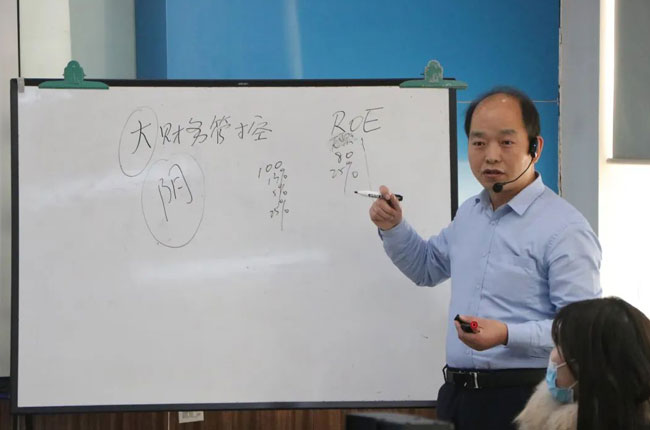 大财务管控
阴
100
15%
5%
25%
ROE
80
25%